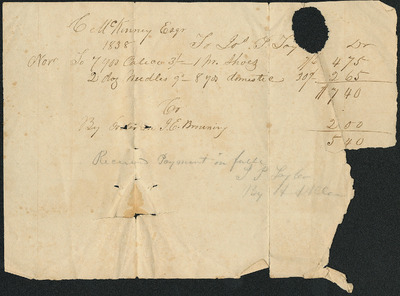 C. McKinney Esqr
1838 To Jos. P. Dr
Nov To 7 yds Calico 3/- 1 pr. Shoes 4 75
2 doz needles 8 yds domestic 2 65
$7 40
Cr
By order on J. E. 2 00
5 40
Received Payment in full
J P Taylor
By